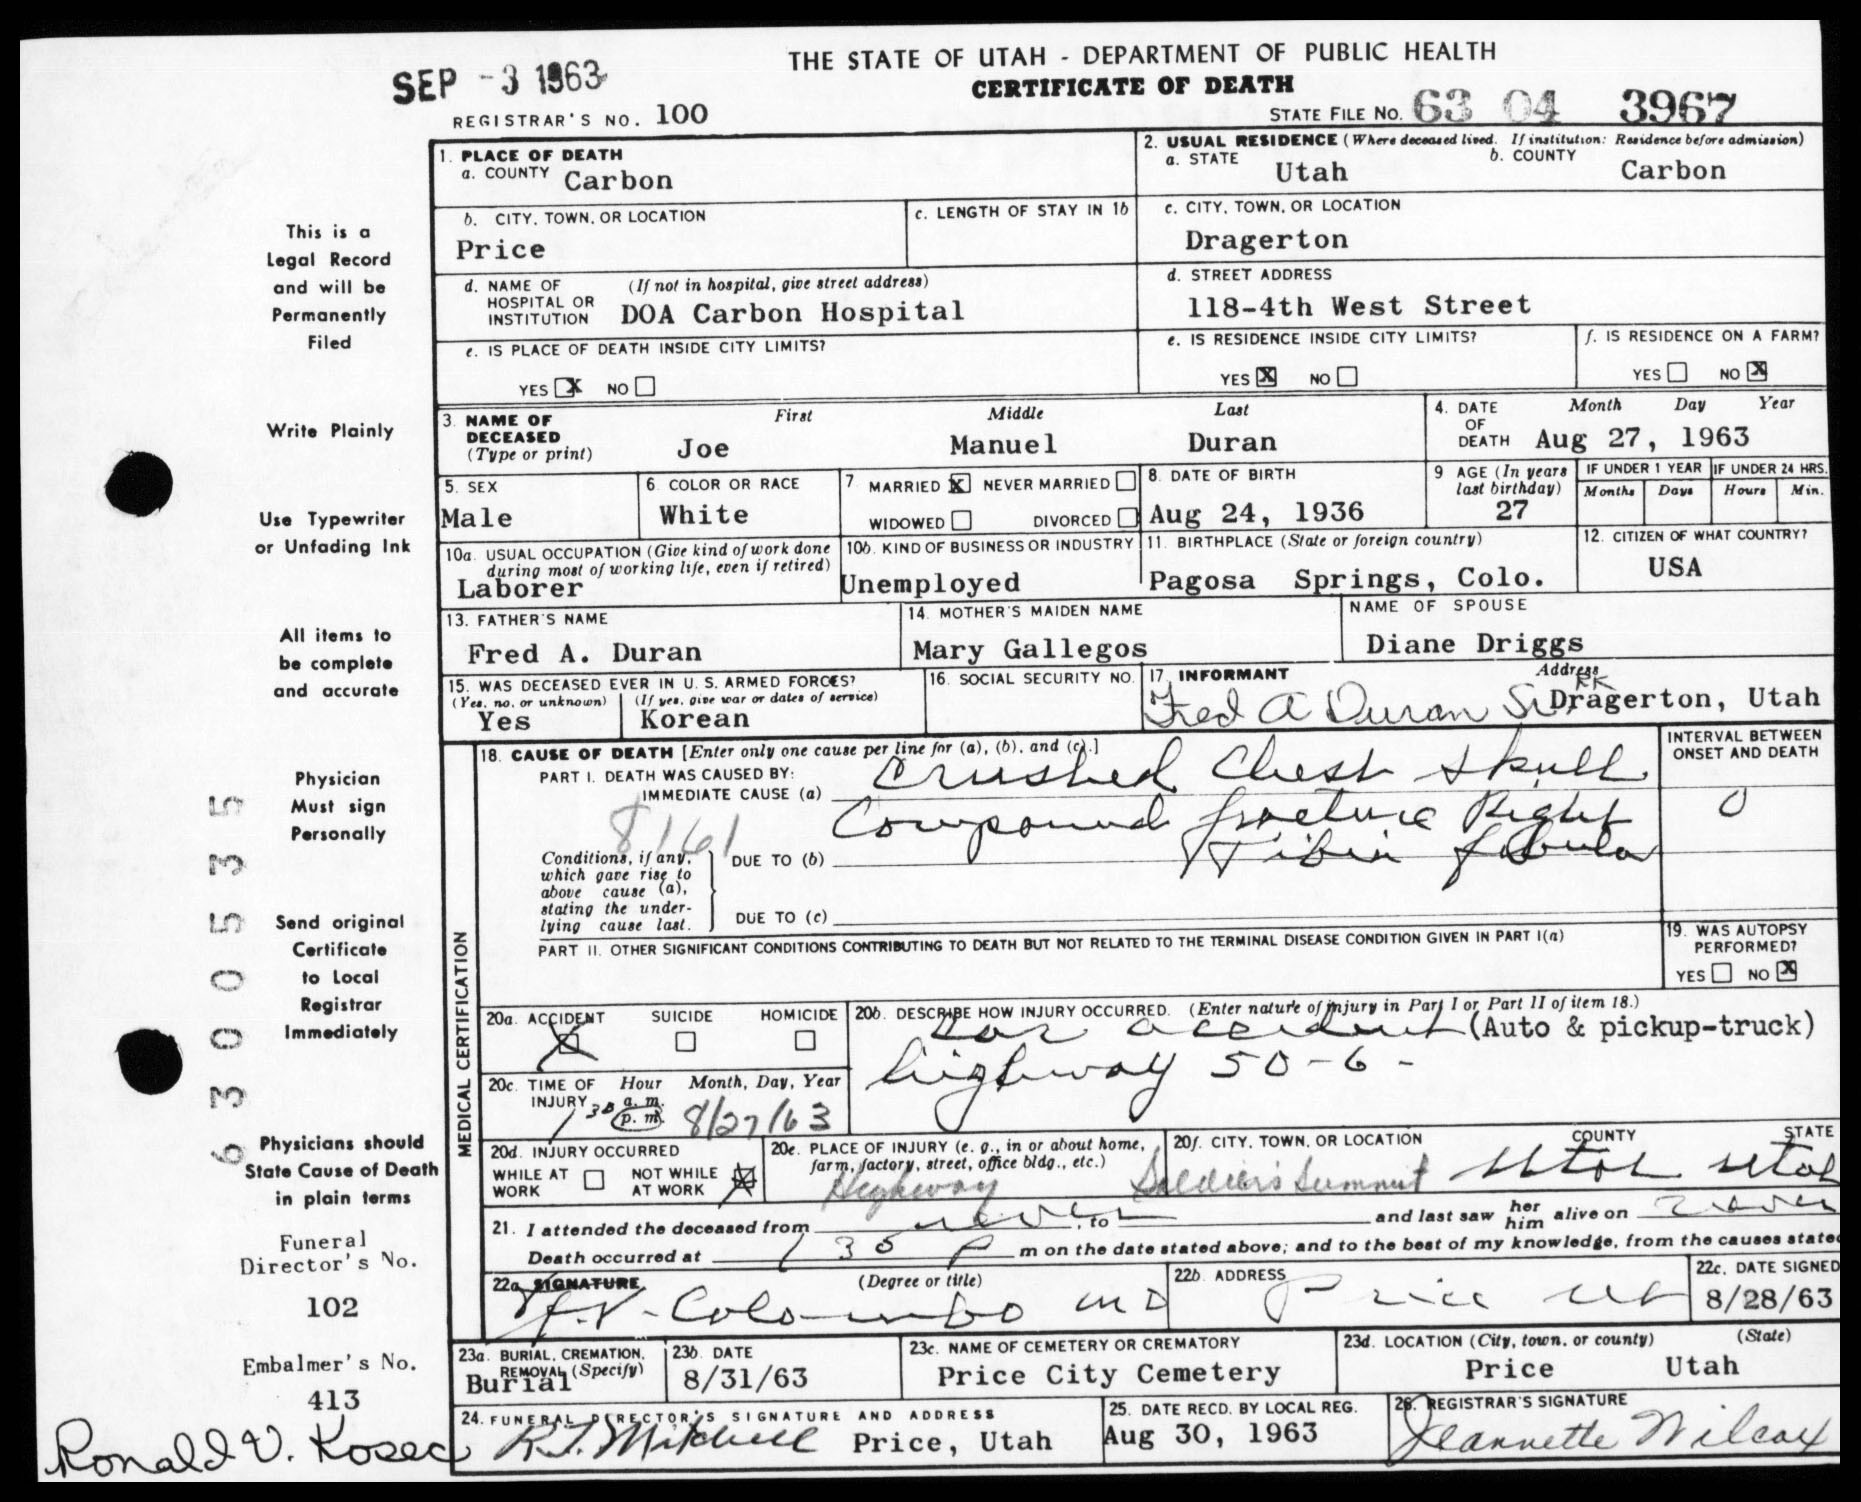 THE STATE OF UTAH - DEPARTMENT OF PUBLIC HEALTH
SEP -3 1963
CERTIFICATE OF DEATH
REGISTRAR'S NO. 100
STATE FILE NO. 63 04 3967
1. PLACE OF DEATH
a. COUNTY Carbon
2. USUAL RESIDENCE (Where deceased lived. If institution: Residence before admission)
a. STATE Utah b. COUNTY Carbon
b. CITY, TOWN, OR LOCATION
Price
c. LENGTH OF STAY IN 1b
c. CITY, TOWN, OR LOCATION
Dragerton
d. NAME OF HOSPITAL OR INSTITUTION (If not in hospital, give street address)
DOA Carbon Hospital
d. STREET ADDRESS
118-4th West Street
e. IS PLACE OF DEATH INSIDE CITY LIMITS?
YES X NO
e. IS RESIDENCE INSIDE CITY LIMITS?
YES X NO
f. IS RESIDENCE ON A FARM?
YES NO X
3. NAME OF DECEASED (Type or print)
First Middle Last
Joe Manuel Duran
4. DATE OF DEATH Month Day Year
Aug 27, 1963
5. SEX
Male
6. COLOR OR RACE
White
7. MARRIED X NEVER MARRIED
WIDOWED DIVORCED
8. DATE OF BIRTH
Aug 24, 1936
9 AGE (In years last birthday)
27
IF UNDER 1 YEAR
Months Days
IF UNDER 24 HRS.
Hours Min.
10a. USUAL OCCUPATION (Give kind of work done during most of working life, even if retired)
Laborer
10b. KIND OF BUSINESS OR INDUSTRY
Unemployed
11. BIRTHPLACE (State or foreign country)
Pagosa Springs, Colo.
12. CITIZEN OF WHAT COUNTRY?
USA
13. FATHER'S NAME
Fred A. Duran
14. MOTHER'S MAIDEN NAME
Mary Gallegos
NAME OF SPOUSE
Diane Driggs
15. WAS DECEASED EVER IN U. S. ARMED FORCES?
(Yes, no, or unknown) (If yes, give war or dates of service)
Yes Korean
16. SOCIAL SECURITY NO.
17. INFORMANT Address
Fred A Duran Sr. Dragerton, Utah
18. CAUSE OF DEATH [Enter only one cause per line for (a), (b), and (c).]
PART I. DEATH WAS CAUSED BY:
IMMEDIATE CAUSE (a) Crushed Chest skull
Compound fracture Right
8161
Conditions, if any, which gave rise to above cause (a), stating the underlying cause last.
DUE TO (b) Tibia fibula
DUE TO (c)
INTERVAL BETWEEN ONSET AND DEATH
0
PART II. OTHER SIGNIFICANT CONDITIONS CONTRIBUTING TO DEATH BUT NOT RELATED TO THE TERMINAL DISEASE CONDITION GIVEN IN PART I(a)
19. WAS AUTOPSY PERFORMED?
YES NO X
MEDICAL CERTIFICATION
20a. ACCIDENT SUICIDE HOMICIDE
20b. DESCRIBE HOW INJURY OCCURRED. (Enter nature of injury in Part I or Part II of item 18.)
car accident (Auto & pickup-truck)
highway 50-6-
20c. TIME OF INJURY Hour Month, Day, Year
1 30 a. m. p. m. 8/27/63
20d. INJURY OCCURRED
WHILE AT WORK NOT WHILE AT WORK X
20e. PLACE OF INJURY (e. g., in or about home, farm, factory, street, office bldg., etc.)
Highway
20f. CITY, TOWN, OR LOCATION COUNTY STATE
Soldier's Summit Utah Utah
21. I attended the deceased from never, to and last saw her him alive on never
Death occurred at 1 30 P m on the date stated above; and to the best of my knowledge, from the causes state
22a. SIGNATURE (Degree or title)
Colombo MD
22b. ADDRESS
Price Ut
22c. DATE SIGNED
8/28/63
23a. BURIAL, CREMATION, REMOVAL (Specify)
Burial
23b. DATE
8/31/63
23c. NAME OF CEMETERY OR CREMATORY
Price City Cemetery
23d. LOCATION (City, town, or county) (State)
Price Utah
24. FUNERAL DIRECTOR'S SIGNATURE AND ADDRESS
R.T. Mitchell Price, Utah
25. DATE RECD. BY LOCAL REG.
Aug 30, 1963
26. REGISTRAR'S SIGNATURE
Jeannette Wilcox
This is a
Legal Record
and will be
Permanently
Filed
Write Plainly
Use Typewriter
or Unfading Ink
All items to
be complete
and accurate
Physician
Must sign
Personally
Send original
Certificate
to Local
Registrar
Immediately
Physicians should
State Cause of Death
in plain terms
Funeral
Director's No.
102
Embalmer's No.
413
Ronald V. Kosec
6300535